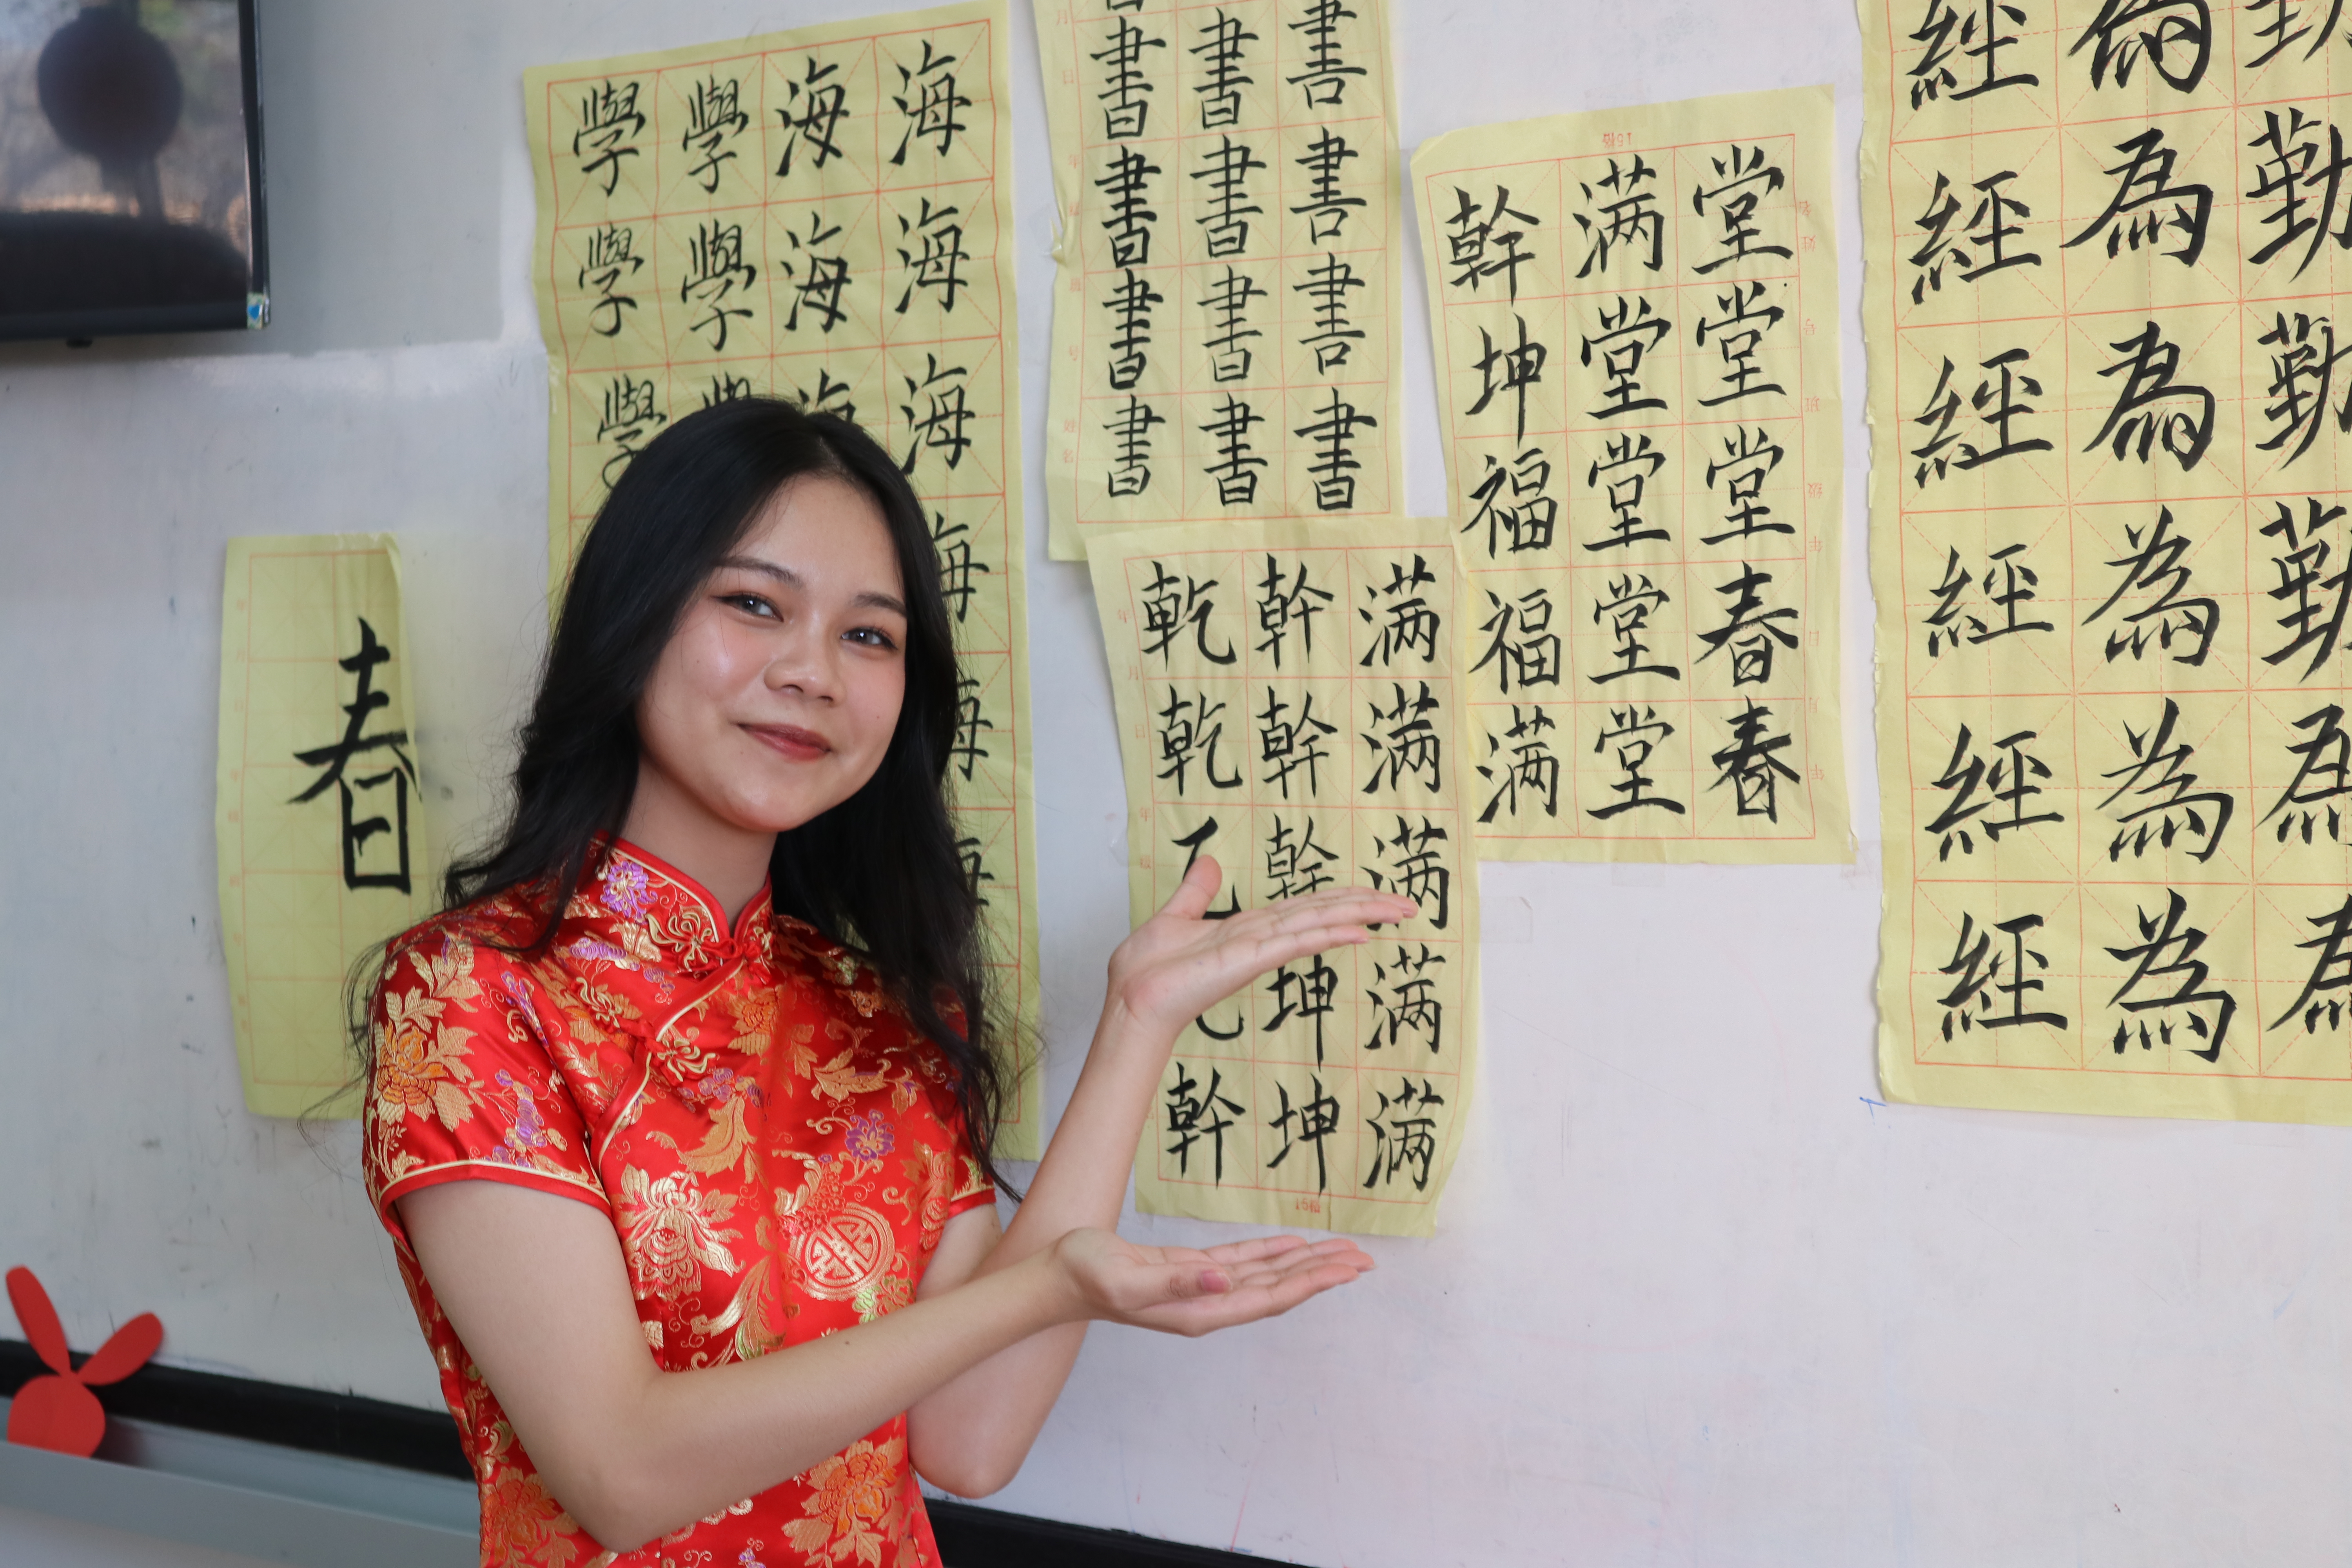 春
海海海海海
海海
學學
學學學
書書書書
書書書書
書書書書
乾乾幹
幹幹幹坤坤
满满满满满
幹坤福福满
满堂堂堂堂
堂堂堂春春
15格
15格
勤勤勤為為
為為為為為為
經經經經經經